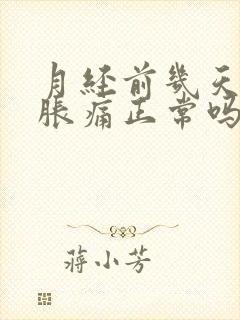 月经前几天
胀痛正常吗
蒋小芳